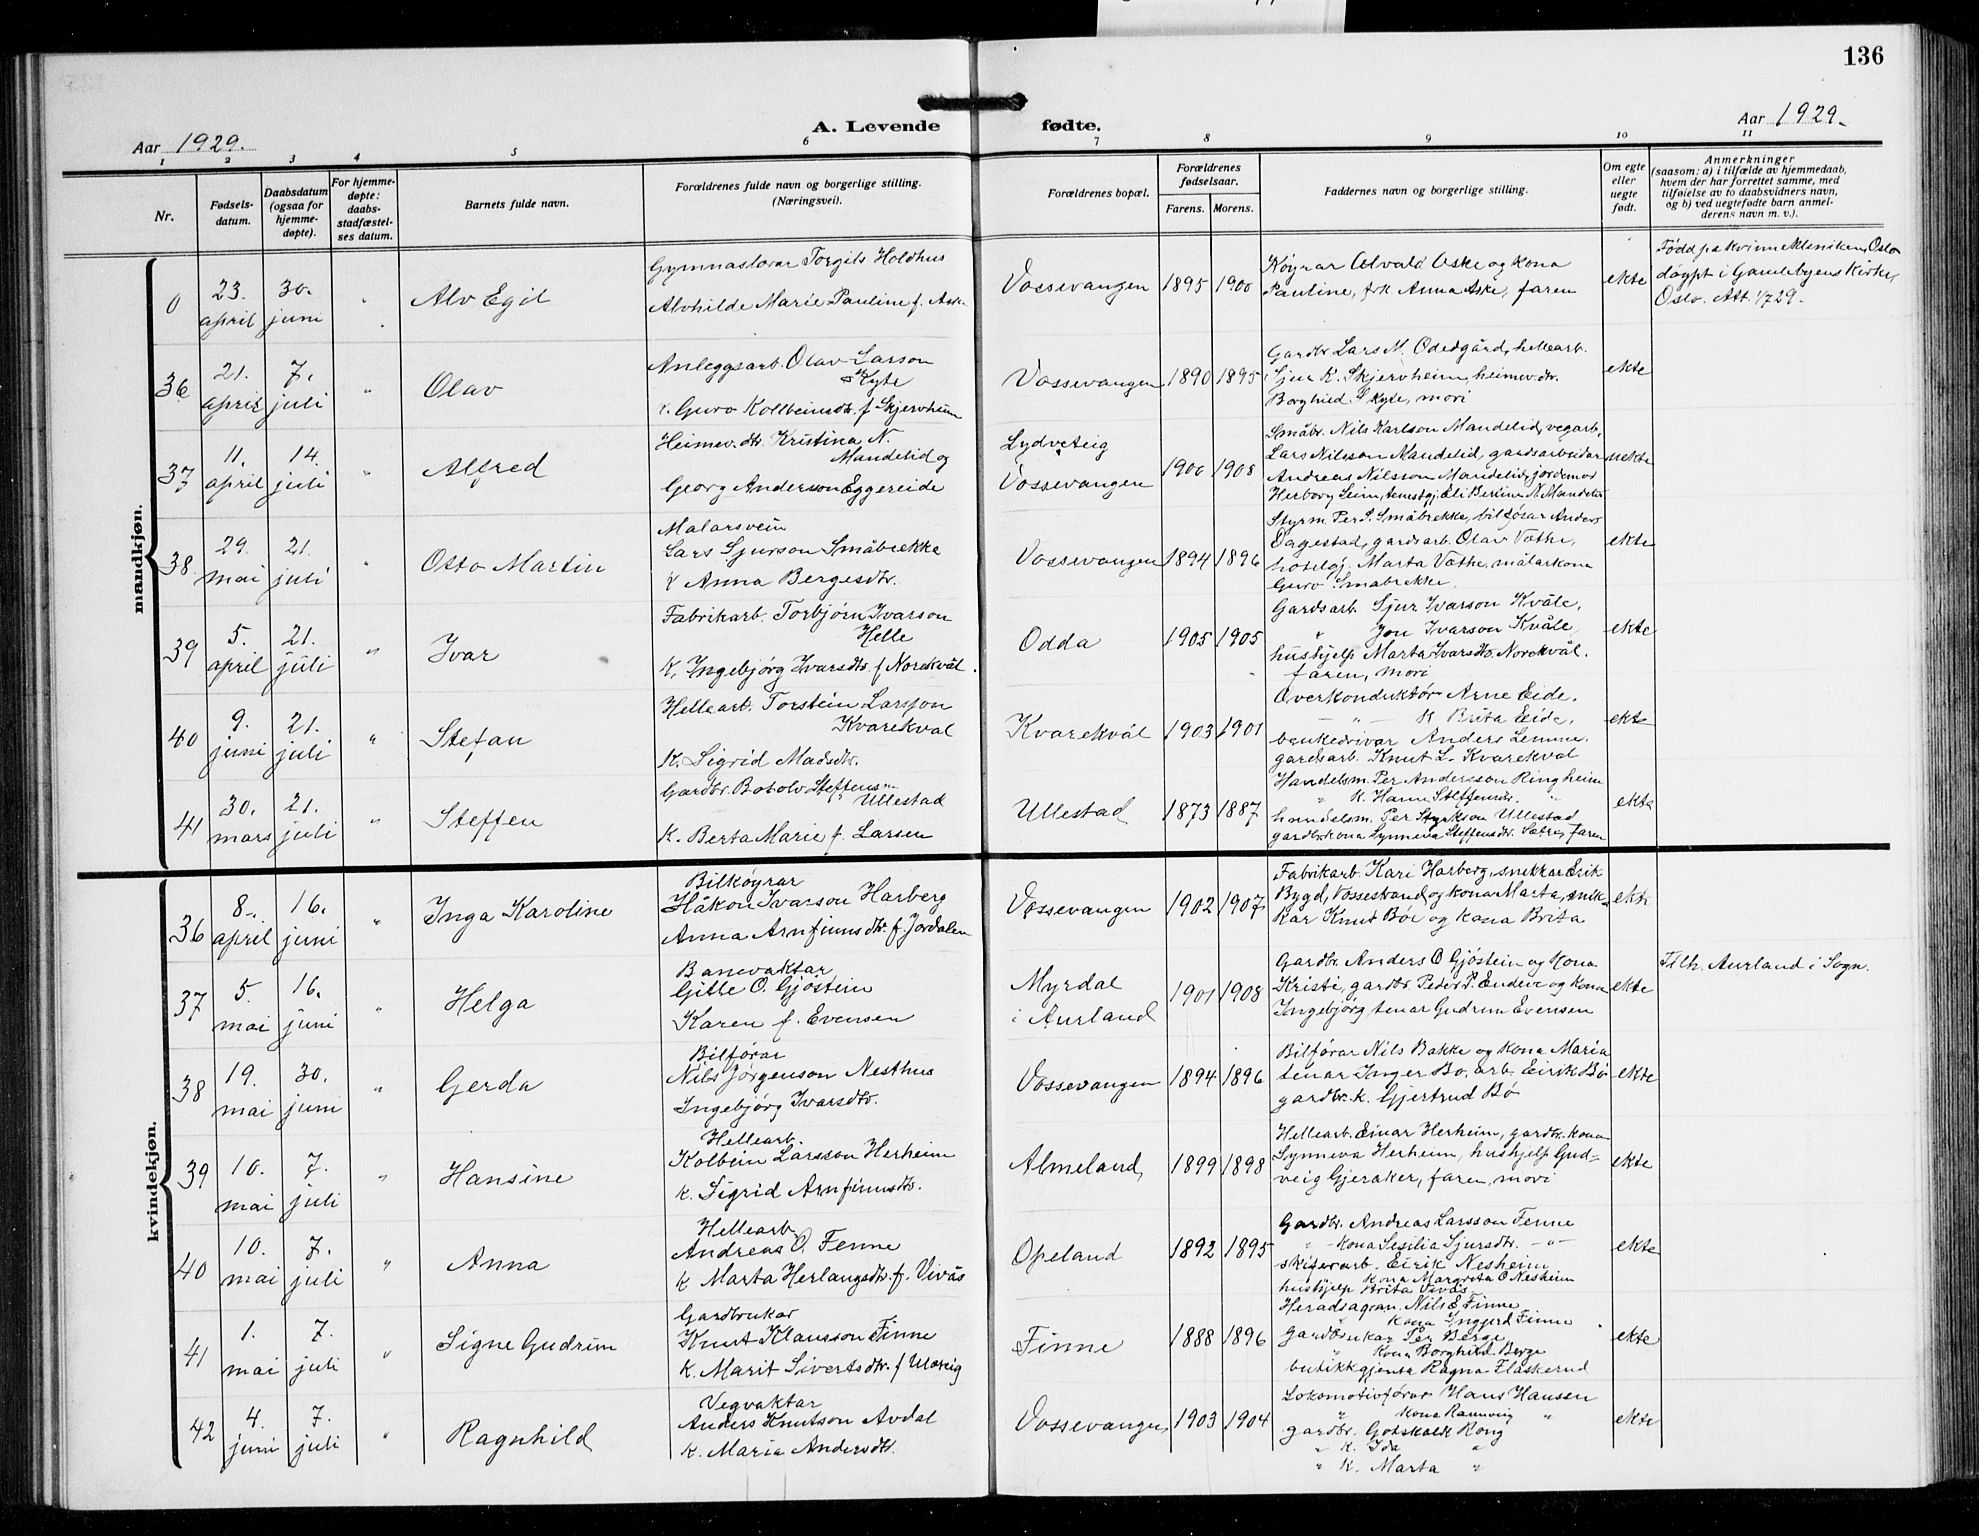 136
Aar 1929.
A. Levende
fødte.
Aar 1929.
1 2 3 4 5 6 7 8 9 10 11
Nr.
Fødsels-
datum.
Daabsdatum
(ogsaa for
hjemme-
døpte).
For hjemme-
døpte:
daabs-
stadfæstel-
ses datum.
Barnets fulde navn.
Forældrenes fulde navn og borgerlige stilling.
(Næringsvei).
Forældrenes bopæl.
Forældrenes
fødselsaar.
Farens. Morens.
Faddernes navn og borgerlige stilling.
Om egte
eller
uegte
født.
Anmerkninger
(saasom: a) i tilfælde av hjemmedaab,
hvem der har forrettet samme, med
tilføielse av to daabsvidners navn,
og b) ved uegtefødte barn anmel-
derens navn m. v.).
mandkjøn.
0
23.
april
30.
juni
"
Alv Egil
Gymnaslærar Torgils Holdhus
Alvhilde Marie Pauline f. Ask
Vossevangen
1895
1900
Køyrar Alvald Aske og kona
Pauline, frk Anna Aske, faren
ekte
Fødd pa Kvinneklinikken, Oslo
døypt i Gamlebyens Kirke,
Oslo. Att. 1/7 29.
36
21.
april
7.
juli
"
Olav
Anleggsarb. Olav Larson
Kyte
k. Guro Kolbeinsdtr. f Skjervheim
Vossevangen
1890
1895
Gardbr. Lars M. Odedgård, hellearb.
Sjur K. Skjervheim, heimev.dtr.
Borghild S Kyte, mori
ekte
37
11.
april
14.
juli
"
Alfred
Heimev. dtr. Kristina N.
Mandelid og
Georg Anderson Eggereide
Lydveteig
Vossevangen
1906
1908
Småbr. Nils Karlson Mandelid, vegarb.
Lars Nilsson Mandelid, gardsarbeidar
Andreas Nilsson Mandelid, jordemor
Herborg Seim, Eli Berine N. Mandelid
uekte
38
29.
mai
21.
juli
"
Otto Martin
Malarsvein
Lars Sjurson Småbrekke
k Anna Bergesdtr.
Vossevangen
1894
1896
Styrm. Per S. Småbrekke, bilførar Anders
Dagestad, gardsarb. Olav Vethe,
hotelgj. Marta Vethe, målarkona
Guro Småbrekke
ekte
39
5.
april
21.
juli
"
Ivar
Fabrikarb. Torbjørn Ivarson
Helle
k. Ingebjørg Ivarsdtr. f Norekvål.
Odda
1905
1905
Gardsarb. Sjur Ivarson Kvåle,
" Jon Ivarson Kvåle,
hushjelp Marta Ivarsdtr. Norekvål.
faren, mori
ekte
40
9.
juni
21.
juli
"
Stefan
Hellearb. Torstein Larsson
Kvarekval
K. Sigrid Madsdtr.
Kvarekvål
1903
1901
Overkonduktør Arne Eide.
— " — K Brita Eide.
benkedrivar Anders Lemme.
gardsarb. Knut L. Kvarekval
ekte
41
30.
mars
21.
juli
"
Steffen
Gardbr. Botolv Steffenson
Ullestad
K. Berta Marie f. Larsen
Ullestad
1873
1887
Handelsm. Per Andersson Ringheim
" K. Hanna Steffensdtr. "
handelsm. Per Styrkson Ullestad
gardbr.kona Synneva Steffensdtr. Sætre, faren
ekte
kvindekjøn.
36
8.
april
16.
juni
"
Inga Karoline
Bilkøyrar
Håkon Ivarson Harberg
Anna Arnfinnsdtr. f. Jordalen
Vossevangen
1902
1907
Fabrikarb. Kari Harberg, snikkar Eirik
Bygd, Vossestrand, og kona Marta, snik-
kar Knut Bøe og kona Brita
ekte
37
5.
mai
16.
juni
"
Helga
Banevaktar
Gille O. Gjøstein
Karen f. Evensen
Myrdal
i Aurland
1901
1908
Gardbr. Anders O Gjøstein og kona
Kristi, gardbr. Peder P. Endeve og kona
Ingebjørg tenar Gudrun Evensen
ekte
Tilh. Aurland i Sogn.
38
19.
mai
30.
juni
"
Gerda
Bilførar
Nils Jørgenson Nesthus
Ingebjørg Ivarsdtr.
Vossevangen
1894
1896
Bilførar Nils Bakke og kona Maria
tenar Inger Bø. arb. Eirik Bø
gardbr. k. Gjertrud Bø
ekte
39
10.
mai
7.
juli
"
Hansine
Hellearb.
Kolbein Larsson Herheim
k. Sigrid Arnfinnsdtr.
Almeland
1899
1898
Hellearb. Einar Herheim, gardbr. kona
Synneva Herheim, hushjelp Gud-
veig Gjeraker, faren, mori
ekte
40
10.
mai
7.
juli
"
Anna
Hellearb
Andreas O. Fenne
k Marta Herlaugsdtr. f. Vivås
Opeland
1892
1895
Gardbr. Andreas Larsson Fenne
" – kona Sesilia Sjursdtr. – " –
skiferarb. Eirik Nesheim
kona Margreta O Nesheim
hushjelp Brita Vivås
ekte
41
1.
mai
7.
juli
"
Signe Gudrun
Gardbrukar
Knut Klausson Finne
k. Marit Sivertsdtr. f
Finne
1888
1896
Heradsagron. Nils E. Finne
" Kona Yngjerd Finne
gardbrukar Per Berge
" Kona Borghild Berge
butikkgjenta Ragna Flaskerud
ekte
42
4.
juni
7.
juli
"
Ragnhild
Vegvaktar
Anders Knutson Avdal
k. Maria Andersdtr.
Vossevangen
1903
1904
Lokomotivførar Hans Hansen
" Kona Rannveig "
gardbr. Gotskalk Rong
" K. Ida "
" K. Marta "
ekte